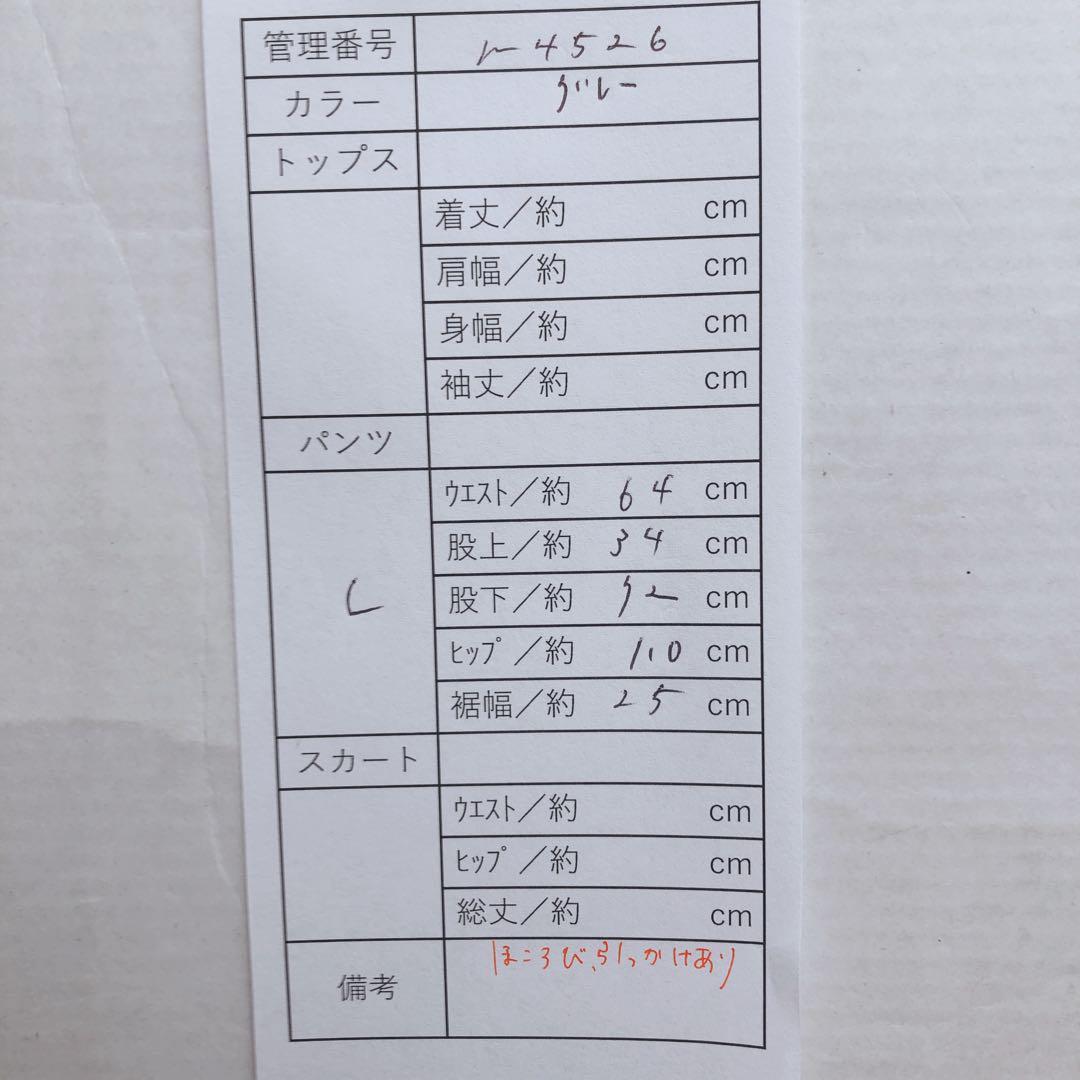 管理番号 r-4526
カラー グレー
トップス
着丈/約 cm
肩幅/約 cm
身幅/約 cm
袖丈/約 cm
パンツ
L
ウエスト/約 64 cm
股上/約 34 cm
股下/約 cm
ヒップ/約 110 cm
裾幅/約 25 cm
スカート
ウエスト/約 cm
ヒップ/約 cm
総丈/約 cm
備考 ほころび、引っかけあり